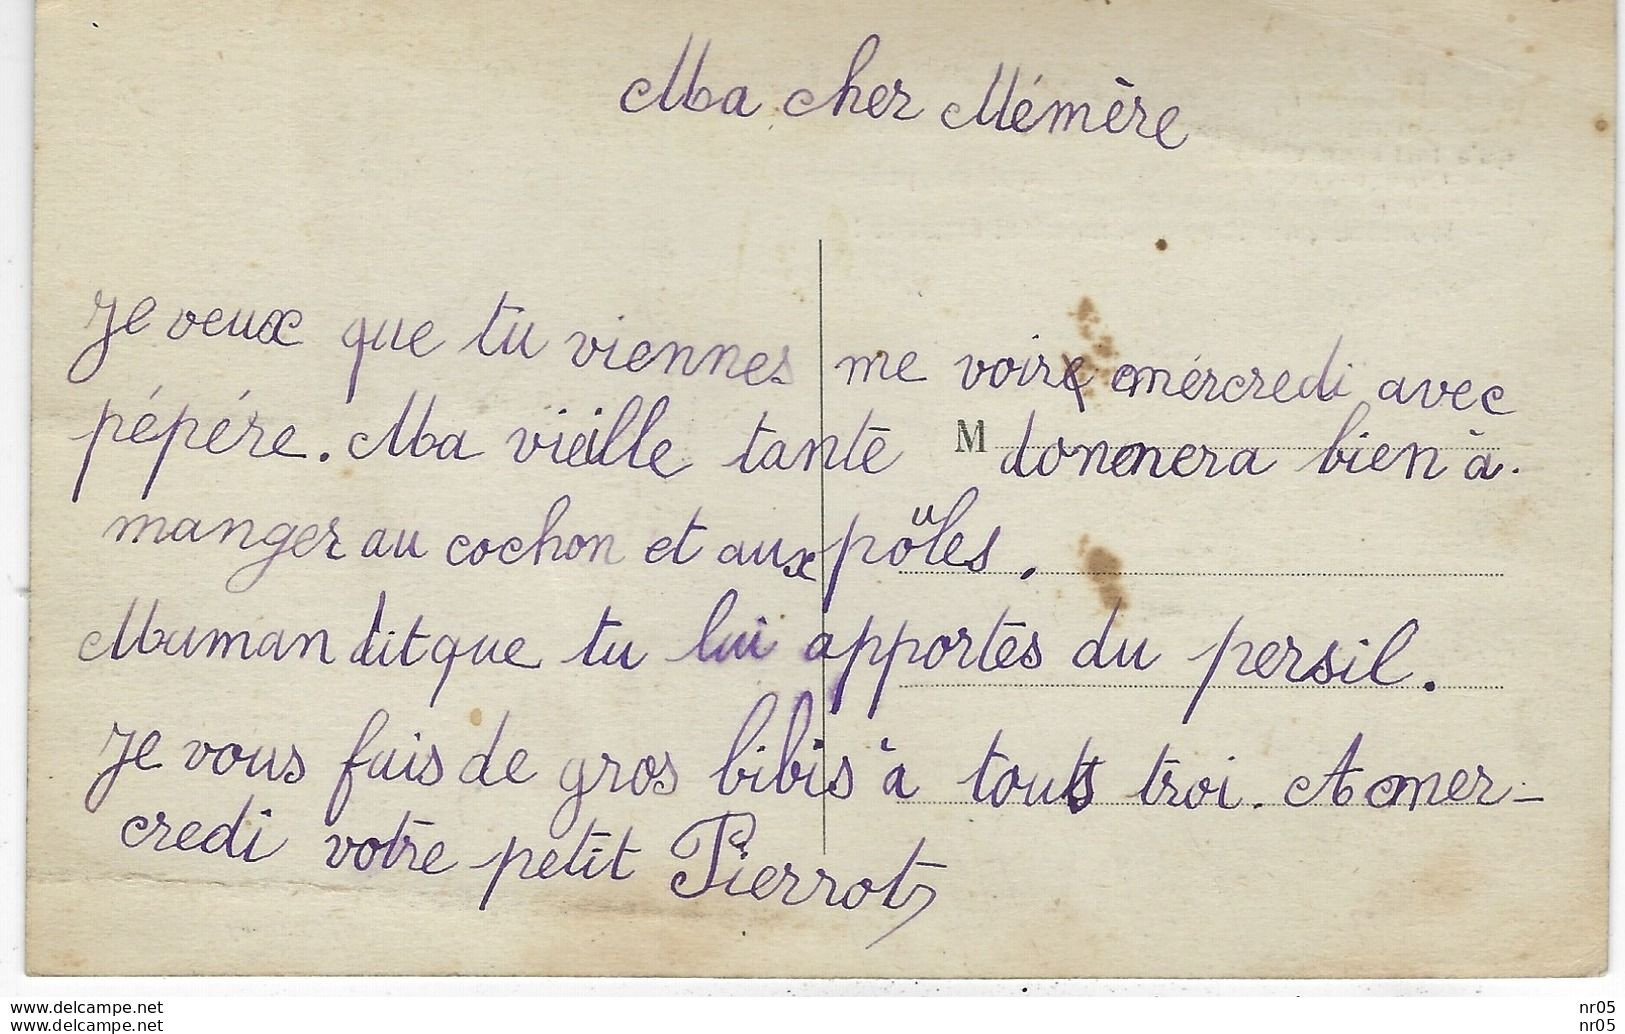 Ma cher Mémère
Je veux que tu viennes me voir mércredi avec
pépére. Ma vieille tante M donnera bien à
manger au cochon et aux poules.
Maman dit que tu lui apportes du persil.
Je vous fais de gros bibis à touts troi. A mer-
credi votre petit Pierrot
www.delcampe.net nr05
www.delcampe.net nr05